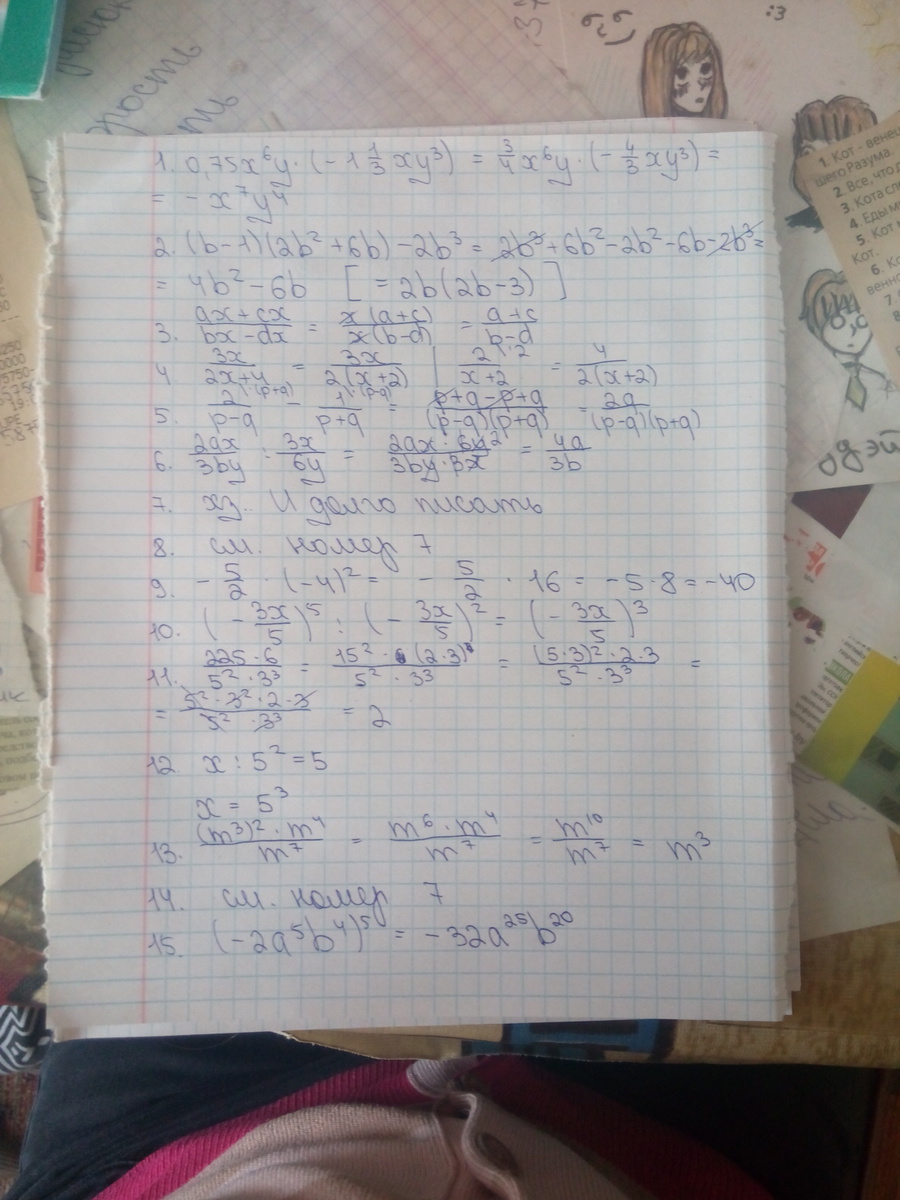 :3
рость
1. Кот - венец
шего Разума.
2. Все, что д
3. Кота сле
4. Еды м
5. Кот
Кот.
6. К
венно
7.
одэй
1. 0,75x⁶y · (-1 1/3 xy³) = 3/4 x⁶y · (- 4/3 xy³) =
= - x⁷y⁴
2. (b-1)(2b² + 6b) - 2b³ = 2b³ + 6b² - 2b² - 6b - 2b³ =
= 4b² - 6b [ = 2b(2b-3) ]
3. (ax+cx)/(bx-dx) = x(a+c)/x(b-d) = (a+c)/(b-d)
4. 3x/(2x+4) = 3x/2(x+2) | 2/(x+2) ·2 = 4/2(x+2)
5. 2/(p-q) ·(p+q) - 1/(p+q) ·(p-q) = (p+q-p+q)/(p-q)(p+q) = 2q/(p-q)(p+q)
6. 2ax/3by : 3x/6y = 2ax · 6y²/3by · 3x = 4a/3b
7. хз.. И долго писать
8. см. номер 7
9. - 5/2 · (-4)² = - 5/2 · 16 = -5·8 = -40
10. (- 3x/5)⁵ : (- 3x/5)² = (- 3x/5)³
11. 225·6/5²·3³ = 15² · (2·3)/5² · 3³ = (5·3)²·2·3/5²·3³ =
= 5²·3²·2·3/5²·3³ = 2
12. x : 5² = 5
x = 5³
13. (m³)²·m⁴/m⁷ = m⁶·m⁴/m⁷ = m¹⁰/m⁷ = m³
14. см. номер 7
15. (-2a⁵b⁴)⁵ = -32a²⁵b²⁰